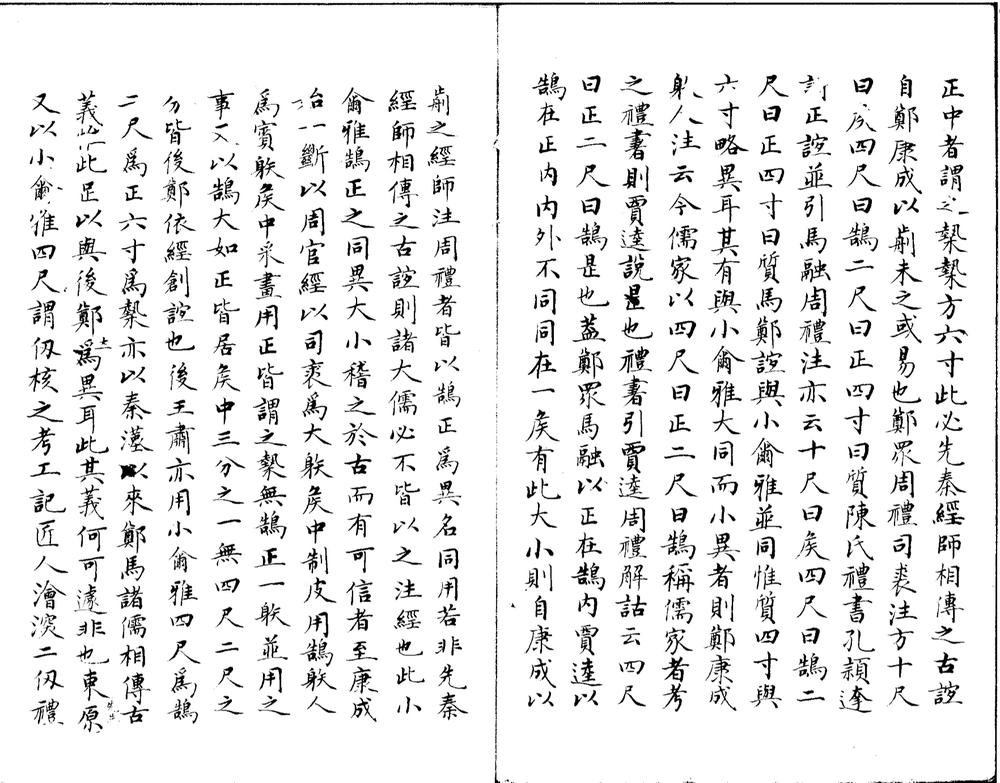 正中者謂之槷槷方六寸此必先秦經師相傳之古誼
自鄭康成以前未之或易也鄭眾周禮司裘注方十尺
曰矦四尺曰鵠二尺曰正四寸曰質陳氏禮書孔穎達
正誼並引馬融周禮注亦云十尺曰矦四尺曰鵠二
尺曰正四寸曰質馬鄭誼與小爾雅並同惟質四寸與
六寸略異耳其有與小爾雅大同而小異者則鄭康成
射人注云今儒家以四尺曰正二尺曰鵠稱儒家者考
之禮書則賈逵說是也禮書引賈逵周禮解詁云四尺
曰正二尺曰鵠是也葢鄭眾馬融以正在鵠內賈逵以
鵠在正內內外不同同在一矦有此大小則自康成以
前之經師注周禮者皆以鵠正爲異名同用若非先秦
經師相傳之古誼則諸大儒必不皆以之注經也此小
爾雅鵠正之同異大小稽之於古而有可信者至康成
始一斷以周官經以司裘爲大躲矦中制皮用鵠躲人
爲賓躲矦中采畫用正皆謂之槷無鵠正一躲並用之
事又以鵠大如正皆居矦中三分之一無四尺二尺之
分皆後鄭依經創誼也後王肅亦用小爾雅四尺爲鵠
二尺爲正六寸爲槷亦以秦漢以來鄭馬諸儒相傳古
義此足以與後鄭爲異耳此其義何可遽非也東原
又以小爾雅四尺謂仞核之考工記匠人澮深二仞禮